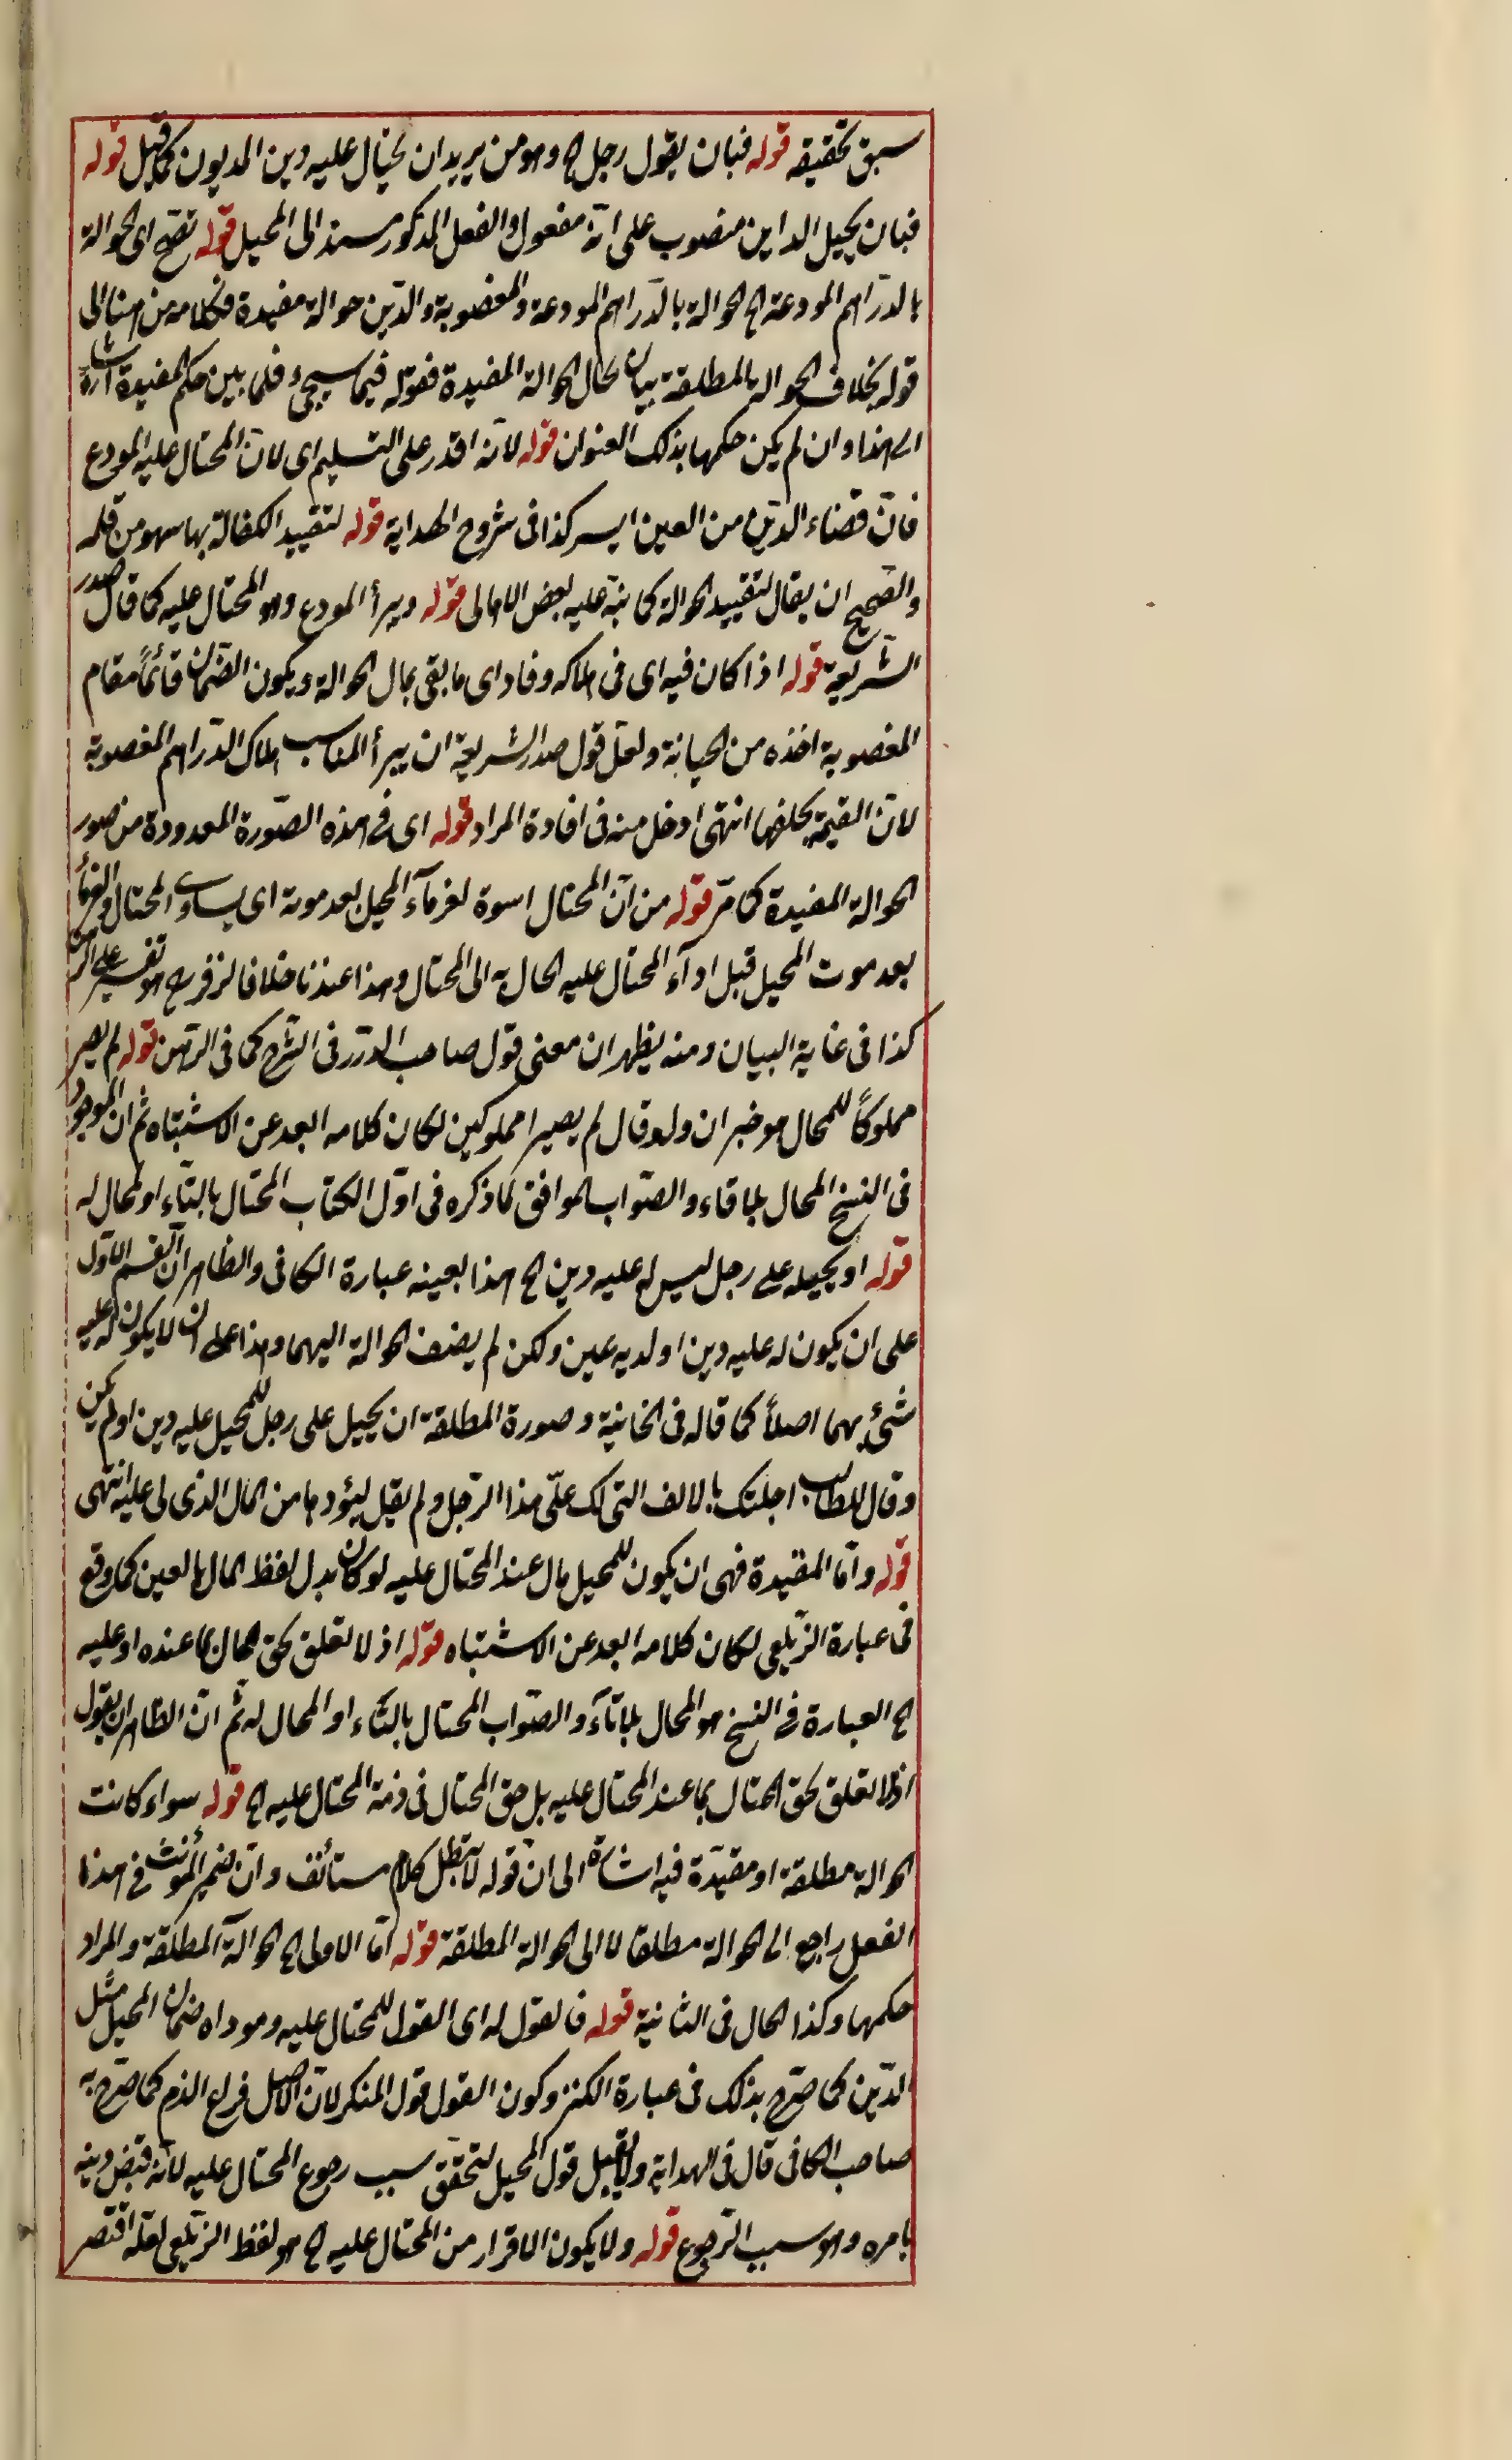 سبق تحقيقه قوله فبان يقول رجل الخ وهو من يريد ان يحتال عليه دين المديون كما قيل قوله
فبان يحيل الداين منصوب على انّه مفعول والفعل المذكور مسند الى المحيل قوله تصحّ اى الحوالة
بالدّراهم المودعة الخ الحوالة بالدّراهم المودعة والمغصوبة والدّين حوالة مقيدة فكلامه من هنا الى
قوله بخلاف الحوالة المطلقة بيان لحال الحوالة المقيدة فقوله فيما سيجئ فلما بين حكم المقيدة اشارة
الى هذا وان لم يكن حكمها بذلك العنوان قوله لانّه اقدر على التسليم اى لانّ المحتال عليه المودع
فانّ قضاء الدّين من العين ايسر كذا فى شروح الهداية قوله لتقييد الكفالة بها سهو من قلمه
والصّحيح ان يقال لتقييد الحوالة كما نبّه عليه بعض الاهالى قوله ويبرأ المودع وهو المحتال عليه كما قال صدر
الشّريعة قوله اذا كان فيه اى فى هلاكه وفاء اى ما بقى بمال الحوالة ويكون الضّمان قائماً مقام
المغصوبة اخذه من الخيانة ولعلّ قول صدر الشّريعة ان يبرأ المناسب هلاك الدّراهم المغصوبة
لانّ القيمة يخلفها انتهى ادخل منه فى افادة المراد قوله اى فى هذه الصّورة المعدودة من صور
الحوالة المقيدة كما مرّ قوله من انّ المحتال اسوة لغرمآء المحيل بعد موته اى يساوى المحتال والغرمآء
بعد موت المحيل قبل ادآء المحتال عليه المحال به الى المحتال وهذا عندنا خلافا لزفر الخ هو تفسير على الرهن
كذا فى غاية البيان ومنه يظهر ان معنى قول صاحب الدّرر فى الشّرح كما فى الرّهن قوله لم يصر
مملوكاً للمحال هو خبر ان ولو قال لم يصيرا مملوكين لكان كلامه ابعد عن الاشتباه ثم ان الموجود
فى النسخ المحال بلا تاء والصّواب الموافق لما ذكره فى اوّل الكتاب المحتال بالتّاء او المحال له
قوله او يحيله على رجل ليس له عليه دين الخ هذا بعينه عبارة الكافى والظاهر انّ القسم الاوّل
على ان يكون له عليه دين او لديه عين ولكن لم يضف الحوالة اليهما وهذا على ان لا يكون له عليه
شئ بهما اصلاً كما قاله فى الخانية وصورة المطلقة ان يحيل على رجل للمحيل عليه دين او لم يكن
وقال للطالب احلتك بالالف التى لك علىّ هذا الرّجل ولم يقل ليؤدها من المال الذى لى عليه انتهى
قوله وامّا المقيدة فهى ان يكون للمحيل مال عند المحتال عليه لو كان بدل لفظ المال بالعين كما وقع
فى عبارة الزّيلعى لكان كلامه ابعد عن الاشتباه قوله اذ لا تعلق لحق المحال بما عنده او عليه
الخ العبارة فى النسخ هو المحال بلا تآء والصّواب المحتال بالتاء او المحال له ثم انّ الظاهر ان يقول
اذ لا تعلق لحق المحتال بما عند المحتال عليه بل حق المحتال فى ذمة المحتال عليه الخ قوله سواء كانت
الحوالة مطلقة او مقيّدة فيه اشارة الى انّ قوله لا تبطل كلام مستأنف وانّ ضمير المؤنث فى هذا
الفعل راجع الى الحوالة مطلقا لا الى الحوالة المطلقة قوله امّا الاولى الخ الحوالة المطلقة والمراد
حكمها وكذا الحال فى الثانية قوله فالقول له اى القول للمحتال عليه ومؤداه ضمان المحيل مثل
الدّين كما صرّح بذلك فى عبارة الكنز وكون القول قول المنكر لانّ الاصل فراغ الذمم كما صرّح به
صاحب الكافى قال فى الهداية ولا يقبل قول المحيل لتحقق سبب رجوع المحتال عليه لانّه قبض دينه
بامره وهو سبب الرّجوع قوله ولا يكون الاقرار من المحتال عليه الخ هو لفظ الزّيلعى لعلّه اقتصر